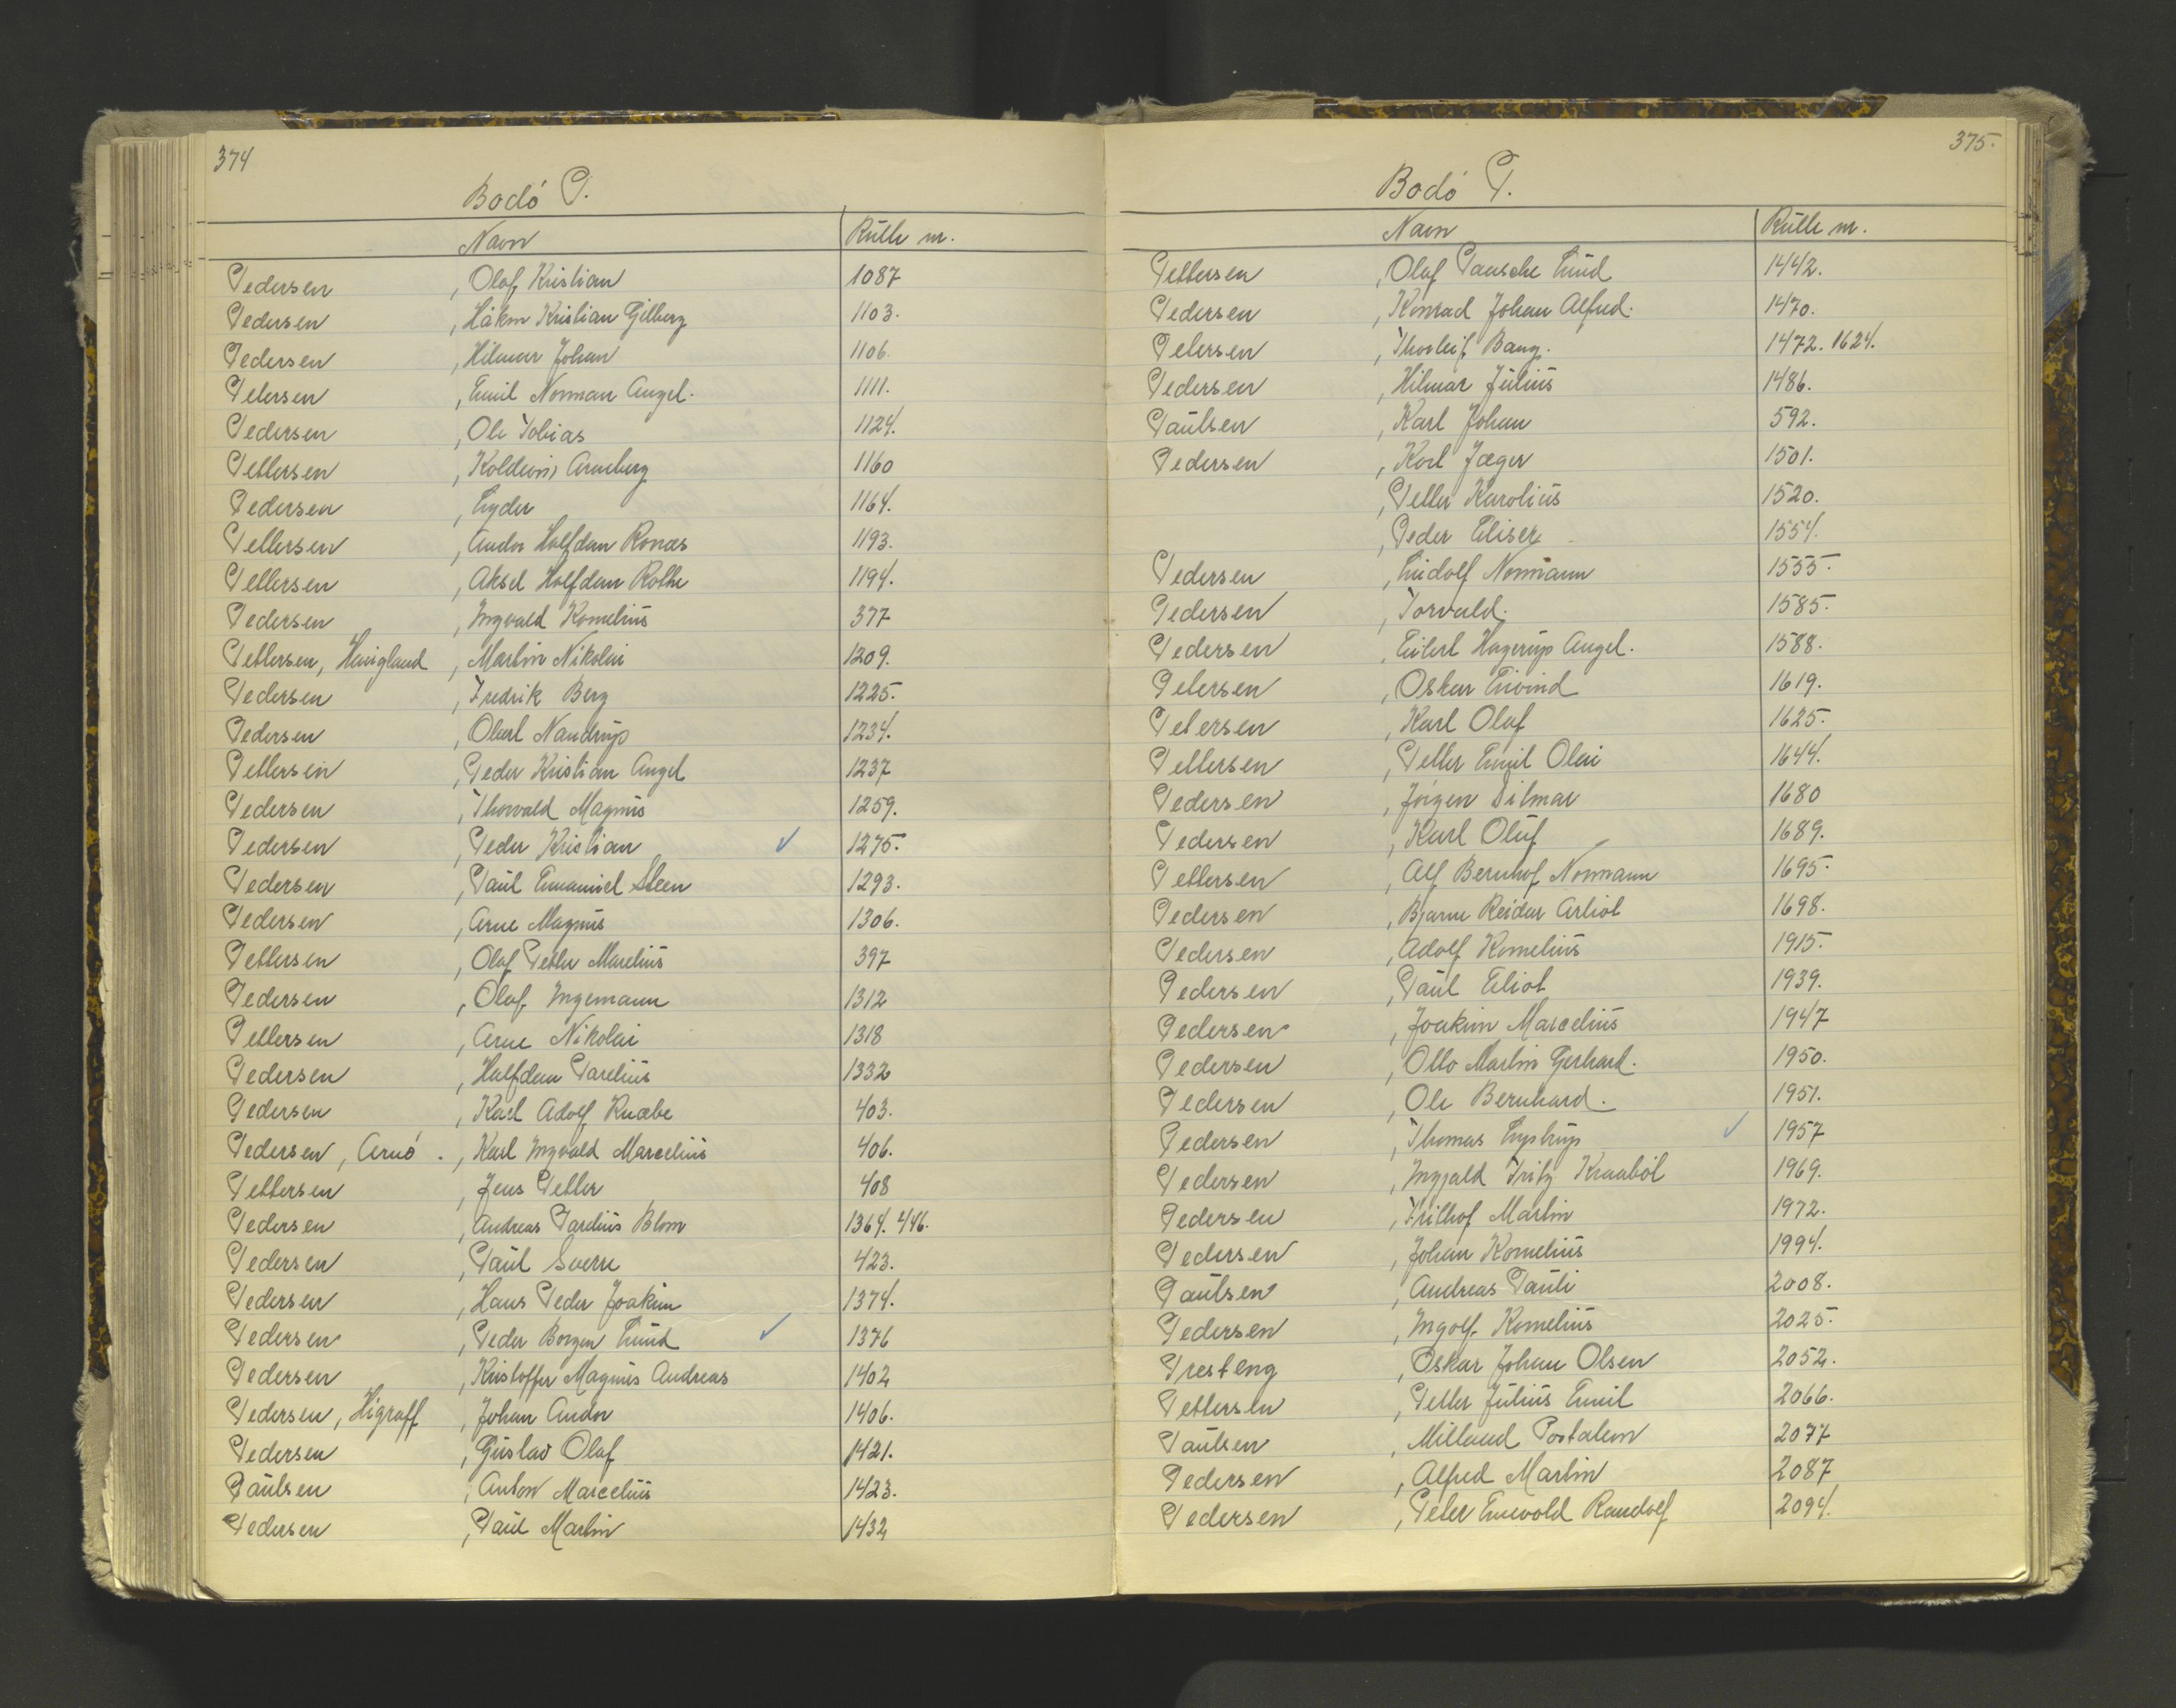 374
Bodó P.
Navn Rulle nr.
Pedersen , Olaf Kristian 1087
Pedersen , Håkon Kristian Gilberg 1103.
Pedersen , Hilmar Johan 1106.
Petersen , Emil Norman Angel. 1111.
Pedersen , Ole Tobias 1124.
Pettersen , Arneberg 1160
Pedersen , Lyder 1164.
Pettersen , Andor Halfdan Ronæs 1193.
Pettersen , Aksel Halfdan Rothe 1194.
Pedersen , Ingvald Kornelius 377
Pettersen, , Martin Nikolai 1209.
Pedersen , Fredrik Berg 1225.
Pedersen , Olarl Nandrup 1234.
Pettersen , Peder Kristian Angel 1237
Pedersen , Thorvald Magnus 1259.
Pedersen , Peder Kristian ✓ 1275.
Pedersen , Paul Emanuel Steen 1293.
Pedersen , Arne Magnus 1306.
Pettersen , Olaf Petter Marelius 397
Pedersen , Olaf Ingemann 1312
Pettersen , Arne Nikolai 1318
Pedersen , Halfdan Parelius 1332
Pedersen , Karl Adolf Knæbe 403.
Pedersen, Arnó . , Karl Ingvald Marcelius 406.
Pettersen , Jens Petter 408
Pedersen , Andreas Parelius Blom 1364. 446.
Pedersen , Paul Sverre 423.
Pedersen , Hans Peder Joakim 1374.
Pedersen , Peder Borgen Lund ✓ 1376
Pedersen , Kristoffer Magnus Andreas 1402
Pedersen, Higraff , Johan Andor 1406.
Pedersen , Gustav Olaf 1421.
Paulsen , Anton Marcelius 1423.
Pedersen , Paul Martin 1432
375.
Bodó P.
Navn Rulle nr.
Pettersen , Olaf Pausche Lund 1442.
Pedersen , Konrad Johan Alfred. 1470.
Petersen , Thorleif Bang. 1472. 1624.
Pedersen , Hilmar Julius 1486.
Paulsen , Karl Johan 592.
Pedersen , Karl Jæger 1501.
, Petter Karolius 1520.
, Peder Eliser 1554.
Pedersen , Ludolf Normann 1555.
Pedersen , Torvald. 1585.
Pedersen , Eilert Hagerup Angel. 1588.
Petersen , Oskar Eivind 1619.
Petersen , Karl Olaf 1625.
Pettersen , Petter Emil Olai 1644.
Pedersen , Jörgen Dilmar 1680
Pedersen , Karl Oluf 1689.
Pettersen , Alf Bernhof Normann 1695.
Pedersen , Bjarne Reidar Arliot 1698.
Pedersen , Adolf Kornelius 1915.
Pedersen , Paul Eliot 1939.
Pedersen , Joakim Marcelius 1947
Pedersen , Otto Martin Gerhard. 1950.
Pedersen , Ole Bernhard. 1951.
Pedersen , Thomas Lystrup ✓ 1957
Pedersen , Ingvald Fritz Kraaból 1969.
Pedersen , Frithof Martin 1972.
Pedersen , Johan Kornelius 1994.
Paulsen , Andreas Pauli 2008.
Pedersen , Ingolf Kornelius 2025.
Presteng , Oskar Johan Olsen 2052.
Pettersen , Petter Julius Emil 2066.
Paulsen , Millaud 2077
Pedersen , Alfred Martin 2087
Pedersen , Peter Enevold Randolf 2094.